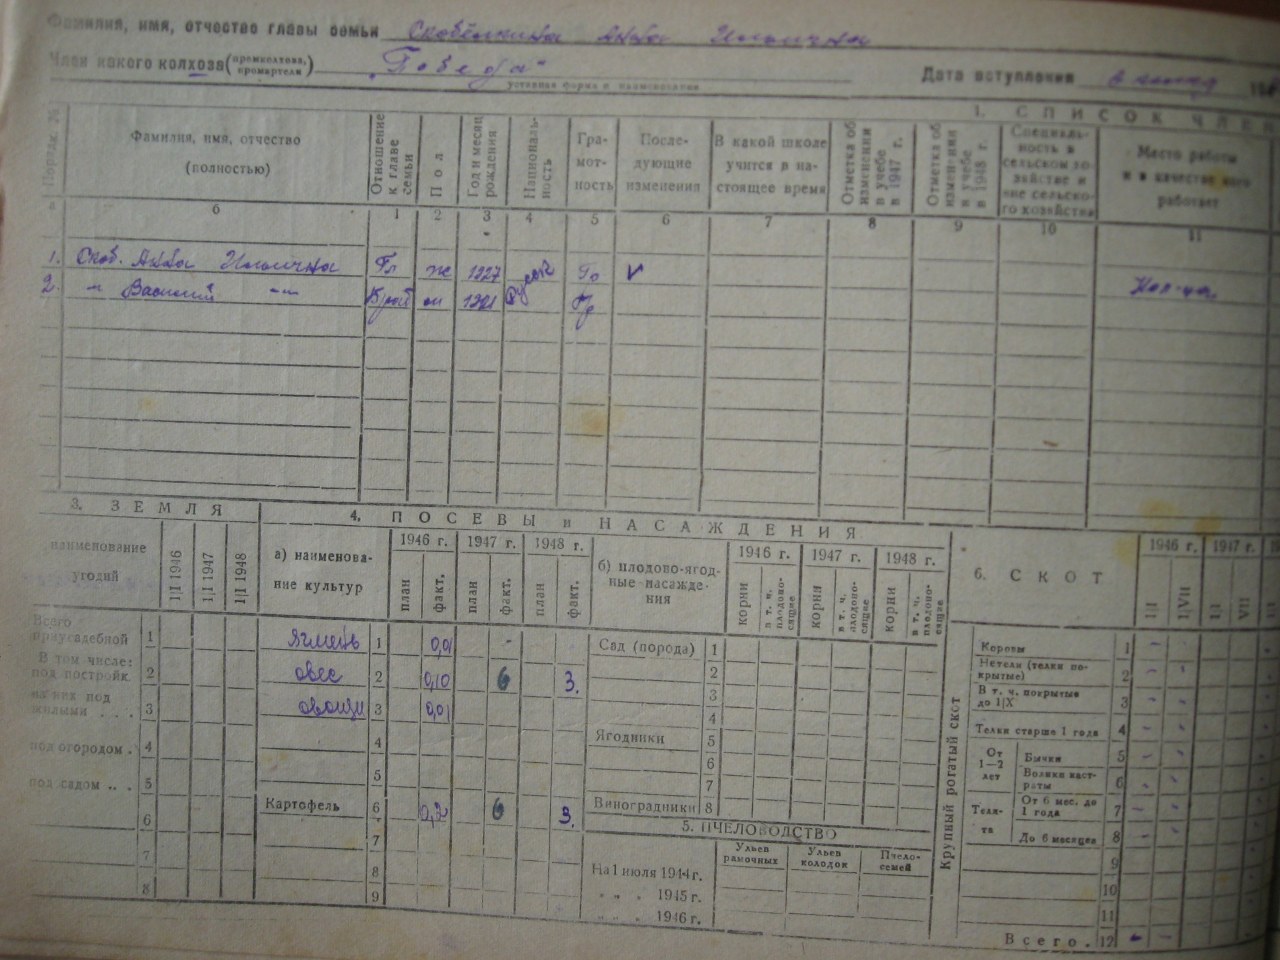 Фамилия, имя, отчество главы семьи Анна
Член какого колхоза (промколхоза, промартели) „Победа"
уставная форма и наименование
Дата вступления
1. СПИСОК
Порядк. №
Фамилия, имя, отчество (полностью)
Отношение к главе семьи
Пол
Год и месяц рождения
Националь-ность
Гра-мот-ность
После-дующие изменения
В какой школе учится в на-стоящее время
Отметка об изменении в учебе в 1947 г.
Отметка об изменении в учебе в 1948 г.
Специаль-ность в сельском хо-зяйстве и вне сельско-го хозяйства
Место работы и в качестве кого работает
а б 1 2 3 4 5 6 7 8 9 10 11
1. Скоб. Анна Гл ж 1927 Гр v
2. -"- Василий -"- Брат м Гр
3. ЗЕМЛЯ
наименование угодий
1|I 1946 1|I 1947 1|I 1948
Всего приусадебной 1
В том числе: под постройк. 2
из них под жилыми . . . 3
под огородом . 4
под садом . . . 5
6
7
8
4. ПОСЕВЫ и НАСАЖДЕНИЯ
а) наименова-ние культур
1946 г. 1947 г. 1948 г.
план факт. план факт. план факт.
ячмень 1 0,01 -
овес 2 0,10 6 3.
овощи 3 0,01
4
5
Картофель 6 6 3.
7
8
9
б) плодово-ягод-ные насажде-ния
1946 г. 1947 г. 1948 г.
корни в т. ч. плодоно-сящие корни в т. ч. плодоно-сящие корни в т. ч. плодоно-сящие
Сад (порода) 1
2
3
4
Ягодники 5
6
7
Виноградники 8
5. ПЧЕЛОВОДСТВО
Ульев рамочных Ульев колодок Пчело-семей
На 1 июля 1944 г.
" " " 1945 г.
" " " 1946 г.
6. СКОТ
1946 г. 1947 г.
1|I 1|VII 1|I VII
Крупный рогатый скот
Коровы 1 - -
Нетели (телки по-крытые) 2 - -
В т. ч. покрытые до 1|X 3 - -
Телки старше 1 года 4 - -
От 1—2 лет Бычки 5 - -
Волики каст-раты 6 - -
Теля-та От 6 мес. до 1 года 7 - -
До 6 месяцев 8 - -
9
10
11
Всего. 12 - -